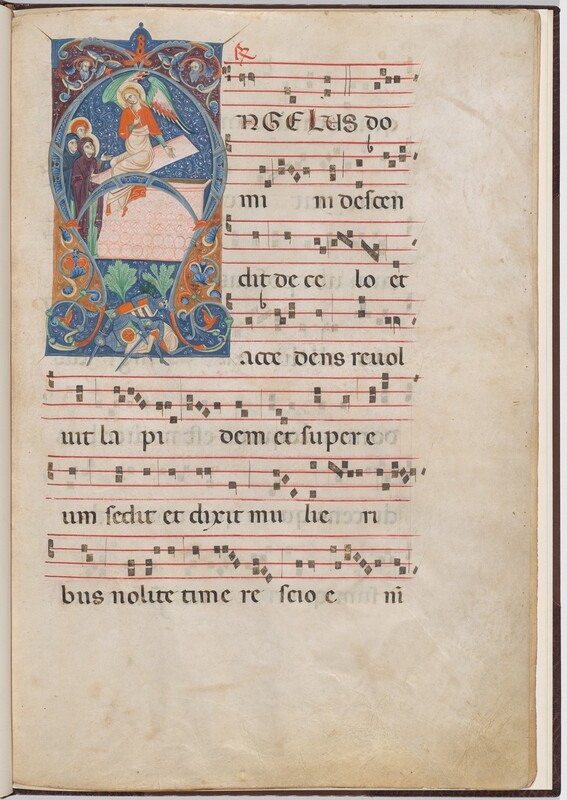 R
ANGELUS do
mi ni descen
dit de ce lo et
acce dens revol
vit la pi dem et super e
um sedit et dixit mu lie ri
bus nolite time re scio e ni